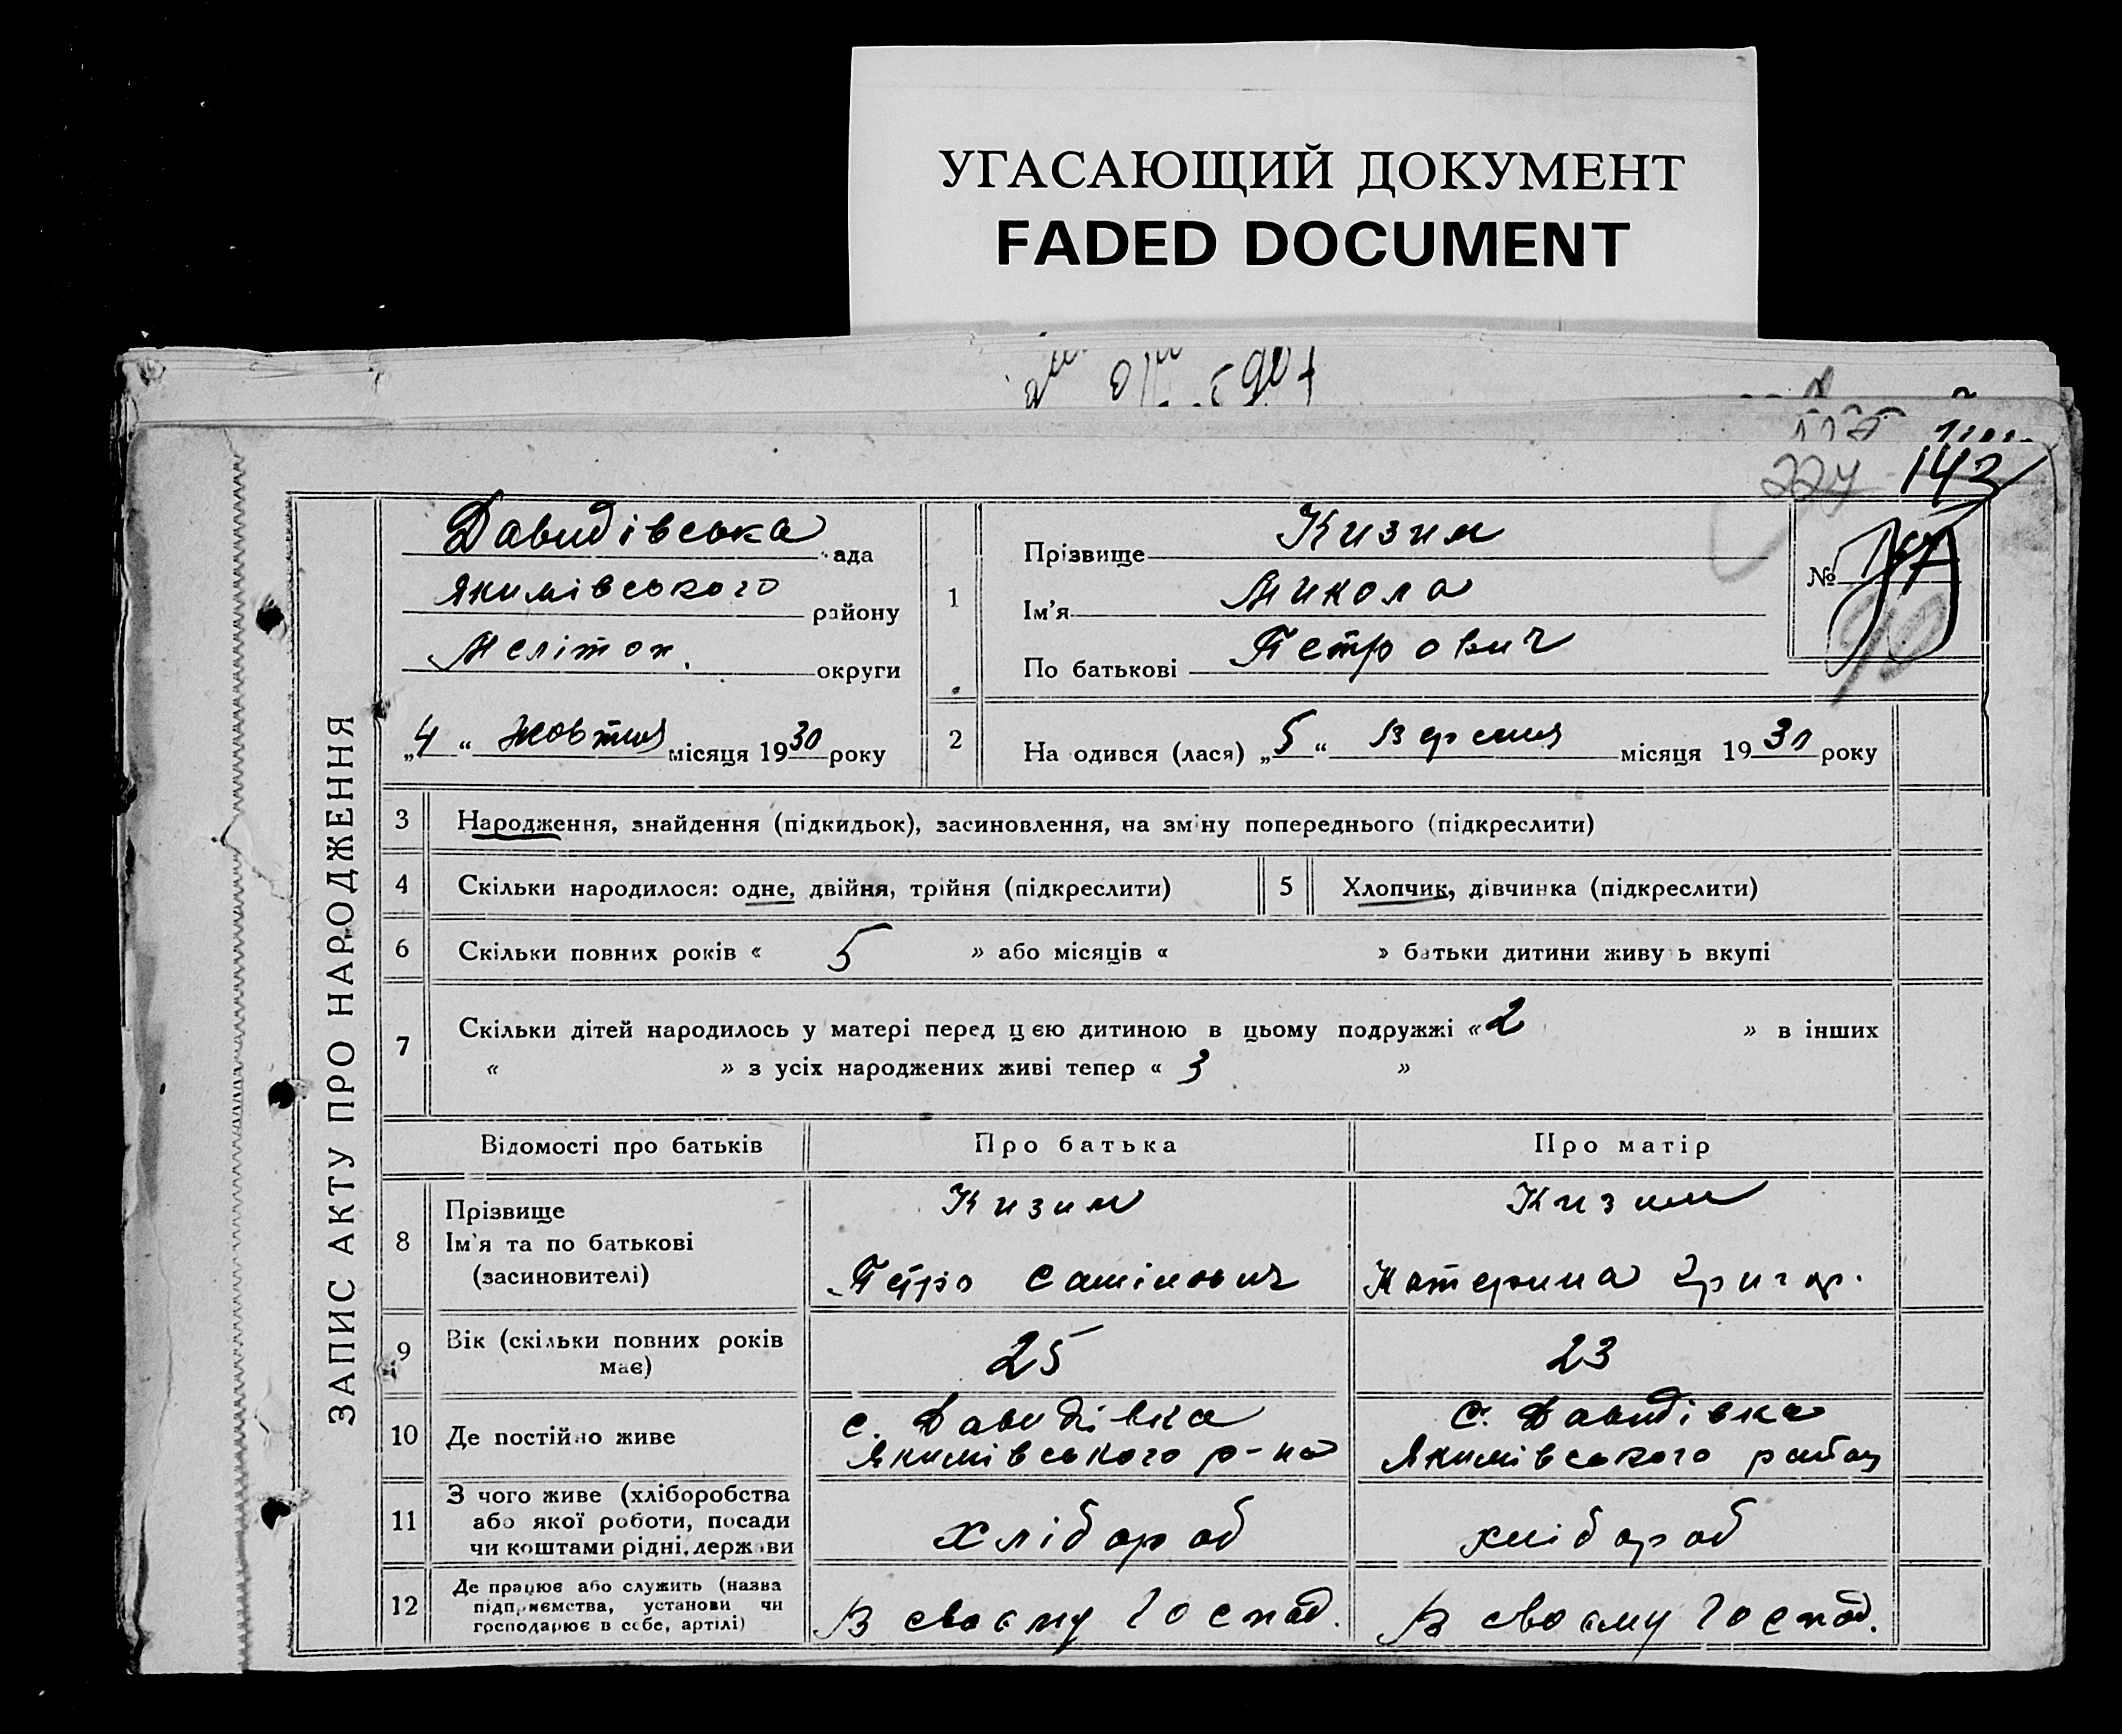 УГАСАЮЩИЙ ДОКУМЕНТ
FADED DOCUMENT
224 143
ЗАПИС АКТУ ПРО НАРОДЖЕННЯ
Давидівська рада
Якимівського району
Мелітоп. округи
„4“ жовтня місяця 1930 року
1
Прізвище Кизим
Ім’я Микола
По батькові Петрович
№
2 На одився (лася) „5“ Вересня місяця 1930 року
3 Народження, знайдення (підкидьок), засиновлення, на зміну попереднього (підкреслити)
4 Скільки народилося: одне, двійня, трійня (підкреслити) 5 Хлопчик, дівчинка (підкреслити)
6 Скільки повних років « 5 » або місяців « » батьки дитини живуть вкупі
7 Скільки дітей народилось у матері перед цією дитиною в цьому подружжі « 2 » в інших
« » з усіх народжених живі тепер « 3 »
Відомості про батьків Про батька Про матір
8 Прізвище Кизим Кизим
Ім’я та по батькові
(засиновителі) Петро Катерина Григор.
9 Вік (скільки повних років
має) 25 23
10 Де постійно живе с. Давидівка с. Давидівка
Якимівського р-на Якимівського району
11 З чого живе (хліборобства
або якої роботи, посади
чи коштами рідні, держави хлібороб хлібороб
12 Де працює або служить (назва
підприємства, установи чи
господарює в себе, артілі) В своєму господ. В своєму господ.